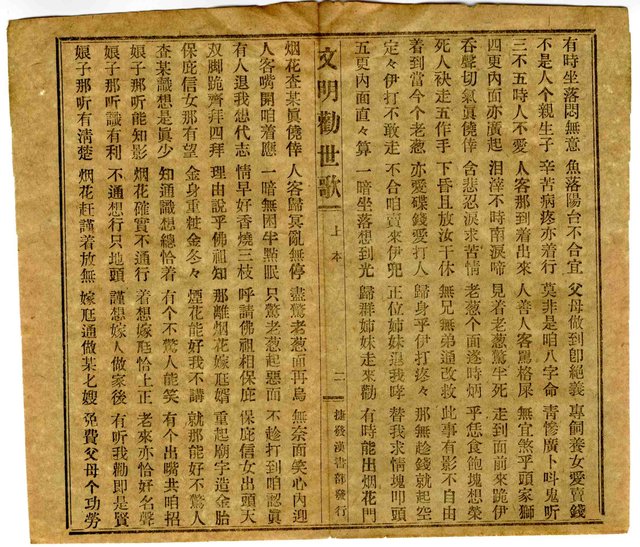 有時坐落悶無意 魚落陽台不合宜 父母做到卽絕義 專飼養女愛賣錢
不是人个親生子 辛苦病疼亦着行 莫非是咱八字命 青慘廣卜叫鬼听
三不五時人不愛 人客那到着出來 人善人客罵格屎 無宜煞乎頭家獅
四更內面亦廣起 泪滓不時南淚啼 見着老葱驚半死 走到面前來跪伊
吞聲切氣眞僥倖 含悲忍淚求苦情 老葱个面逐時炳 乎恁食飽塊想榮
死人袂走五作手 下昏且放汝干休 無兄無弟通改救 此事有影不自由
着到當今个老葱 亦愛碟錢愛打人 歸身乎伊打疼々 那無趁錢就起空
定々伊打不敢走 不合咱賣來伊兜 正位姉妹退我哮 替我求情塊叩頭
五更內面直々算 一暗坐落想到光 歸群姉妹走來勸 有時能出烟花門
文明勸世歌 上本 二 捷發漢書部發行
烟花查某眞僥倖 人客歸冥亂無停 盡驚老葱面再烏 無奈面笑心內迎
人客嘴開咱着應 一暗無困半點眠 只驚老葱起惡面 不趁打到咱認眞
有人退我想代志 情早好香燒三枝 呼請佛祖相保庇 保庇信女出頭天
双脚跪齊拜四拜 理由說乎佛祖知 那離烟花嫁尫婿 重起廟宇造金胎
保庇信女那有望 金身重粧金冬々 煙花能好我不講 就那能好不驚人
查某識想是眞少 知通識想總恰着 有个不驚人能笑 有个出嘴共咱招
娘子那听能知影 烟花確實不通行 着想嫁尫恰上正 老來亦恰好名聲
娘子那听識有利 不通想行只地頭 謹想嫁人做家後 有听我勸即是賢
娘子那听有清楚 烟花赶謹着放無 嫁尫通做某乜嫂 免費父母个功勞